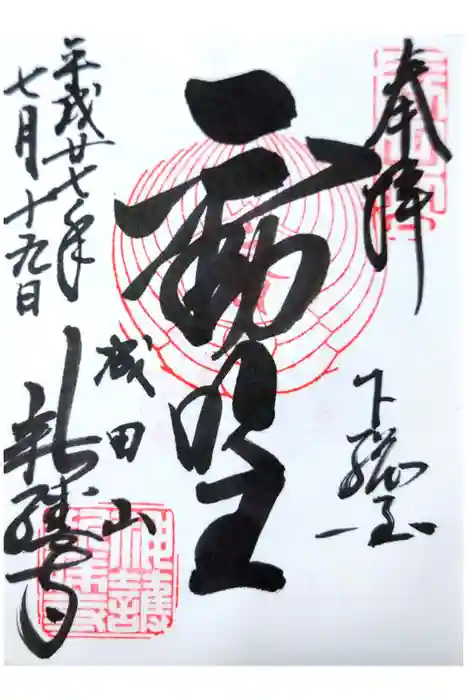 奉拝
下総国
不動明王
平成廿七年
七月十九日
成田山
新勝寺